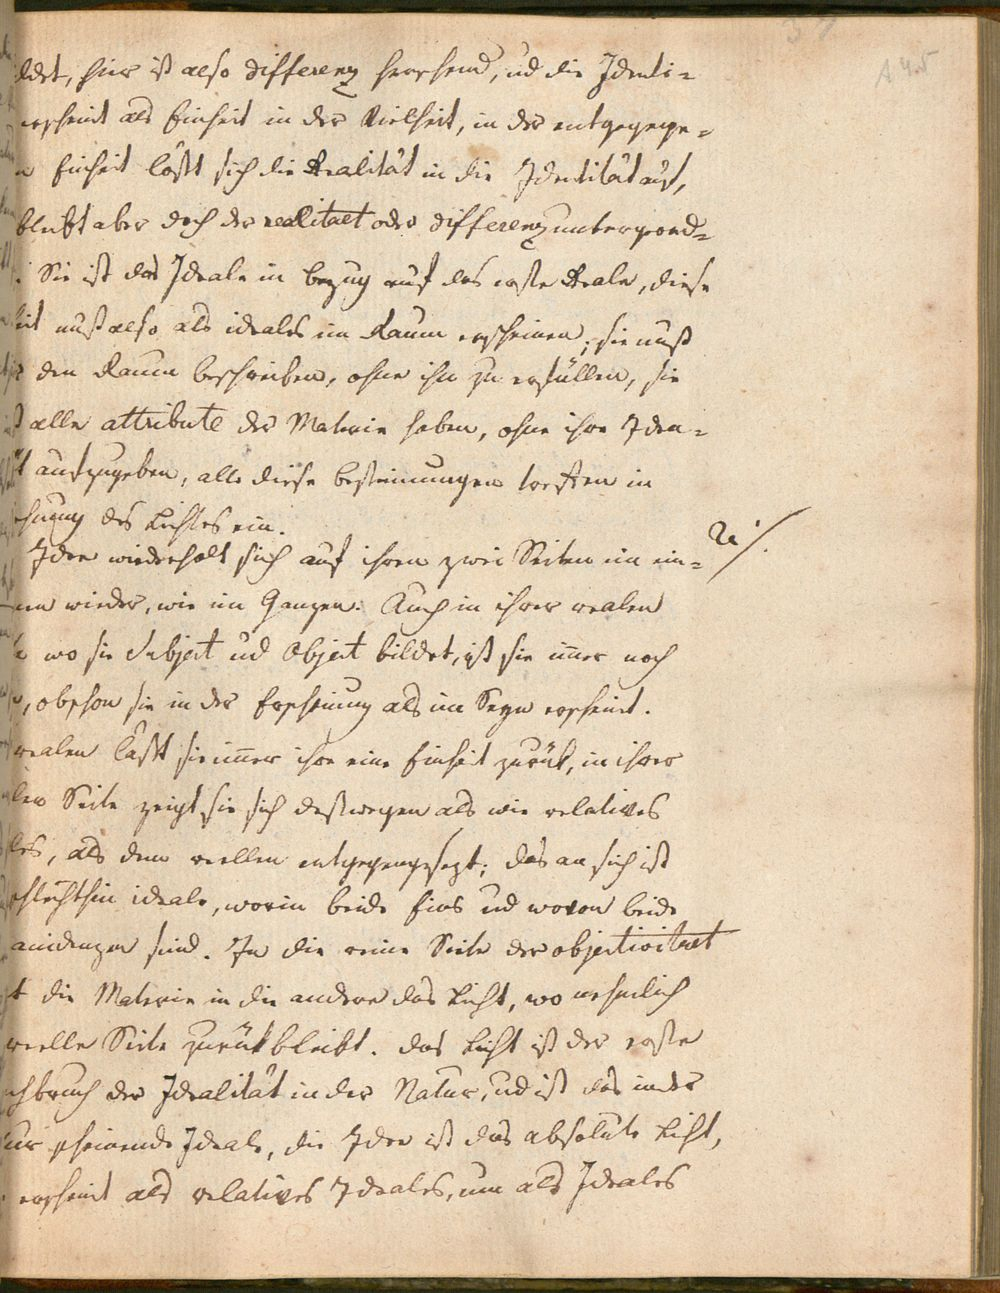 37
A 45
ldet, hier ist also differenz herschend, ud die Identi=
erscheint als Einheit in der Vielheit, in der entgegege=
n Einheit löst sich die Realität in die Identität auf,
bleibt aber doch der realitaet oder differenz untergeord=
. Sie ist das Ideale in bezug auf das erste Reale, diese
eit muß also als ideales im Raum erscheinen, sie muß
den Raum beschreiben, ohne ihn zu erfüllen, sie
ß alle attribute der Materie haben, ohne ihre Iden=
t aufzugeben, alle diese bestimungen treffen in
ehnung des Lichtes ein.
Idee wiederholt sich auf ihren zwei Seiten im ein=
nen wieder, wie im Ganzen. Auch in ihrer realen
wo sie Subject ud Object bildet, ist sie imer noch
, obschon sie in der Erscheinung als im Seyn erscheint.
realen läst sie imer ihre eine Einheit zurük, in ihrer
len Seite zeigt sie sich deßwegen als wie relatives
les, als dem reellen entgegengesezt; das an sich ist
schlechthin ideale, worin beide Eins ud wovon beide
sind. In die reine Seite der objectivitaet
t die Materie in die andere das Licht, wo nehmlich
reelle Seite zurükbleibt. das Licht ist der erste
chbruch der Idealität in der Natur, ud ist das in der
ur scheinende Ideale, die Idee ist das absolute Licht,
erscheint als relatives Ideales, um als Ideales